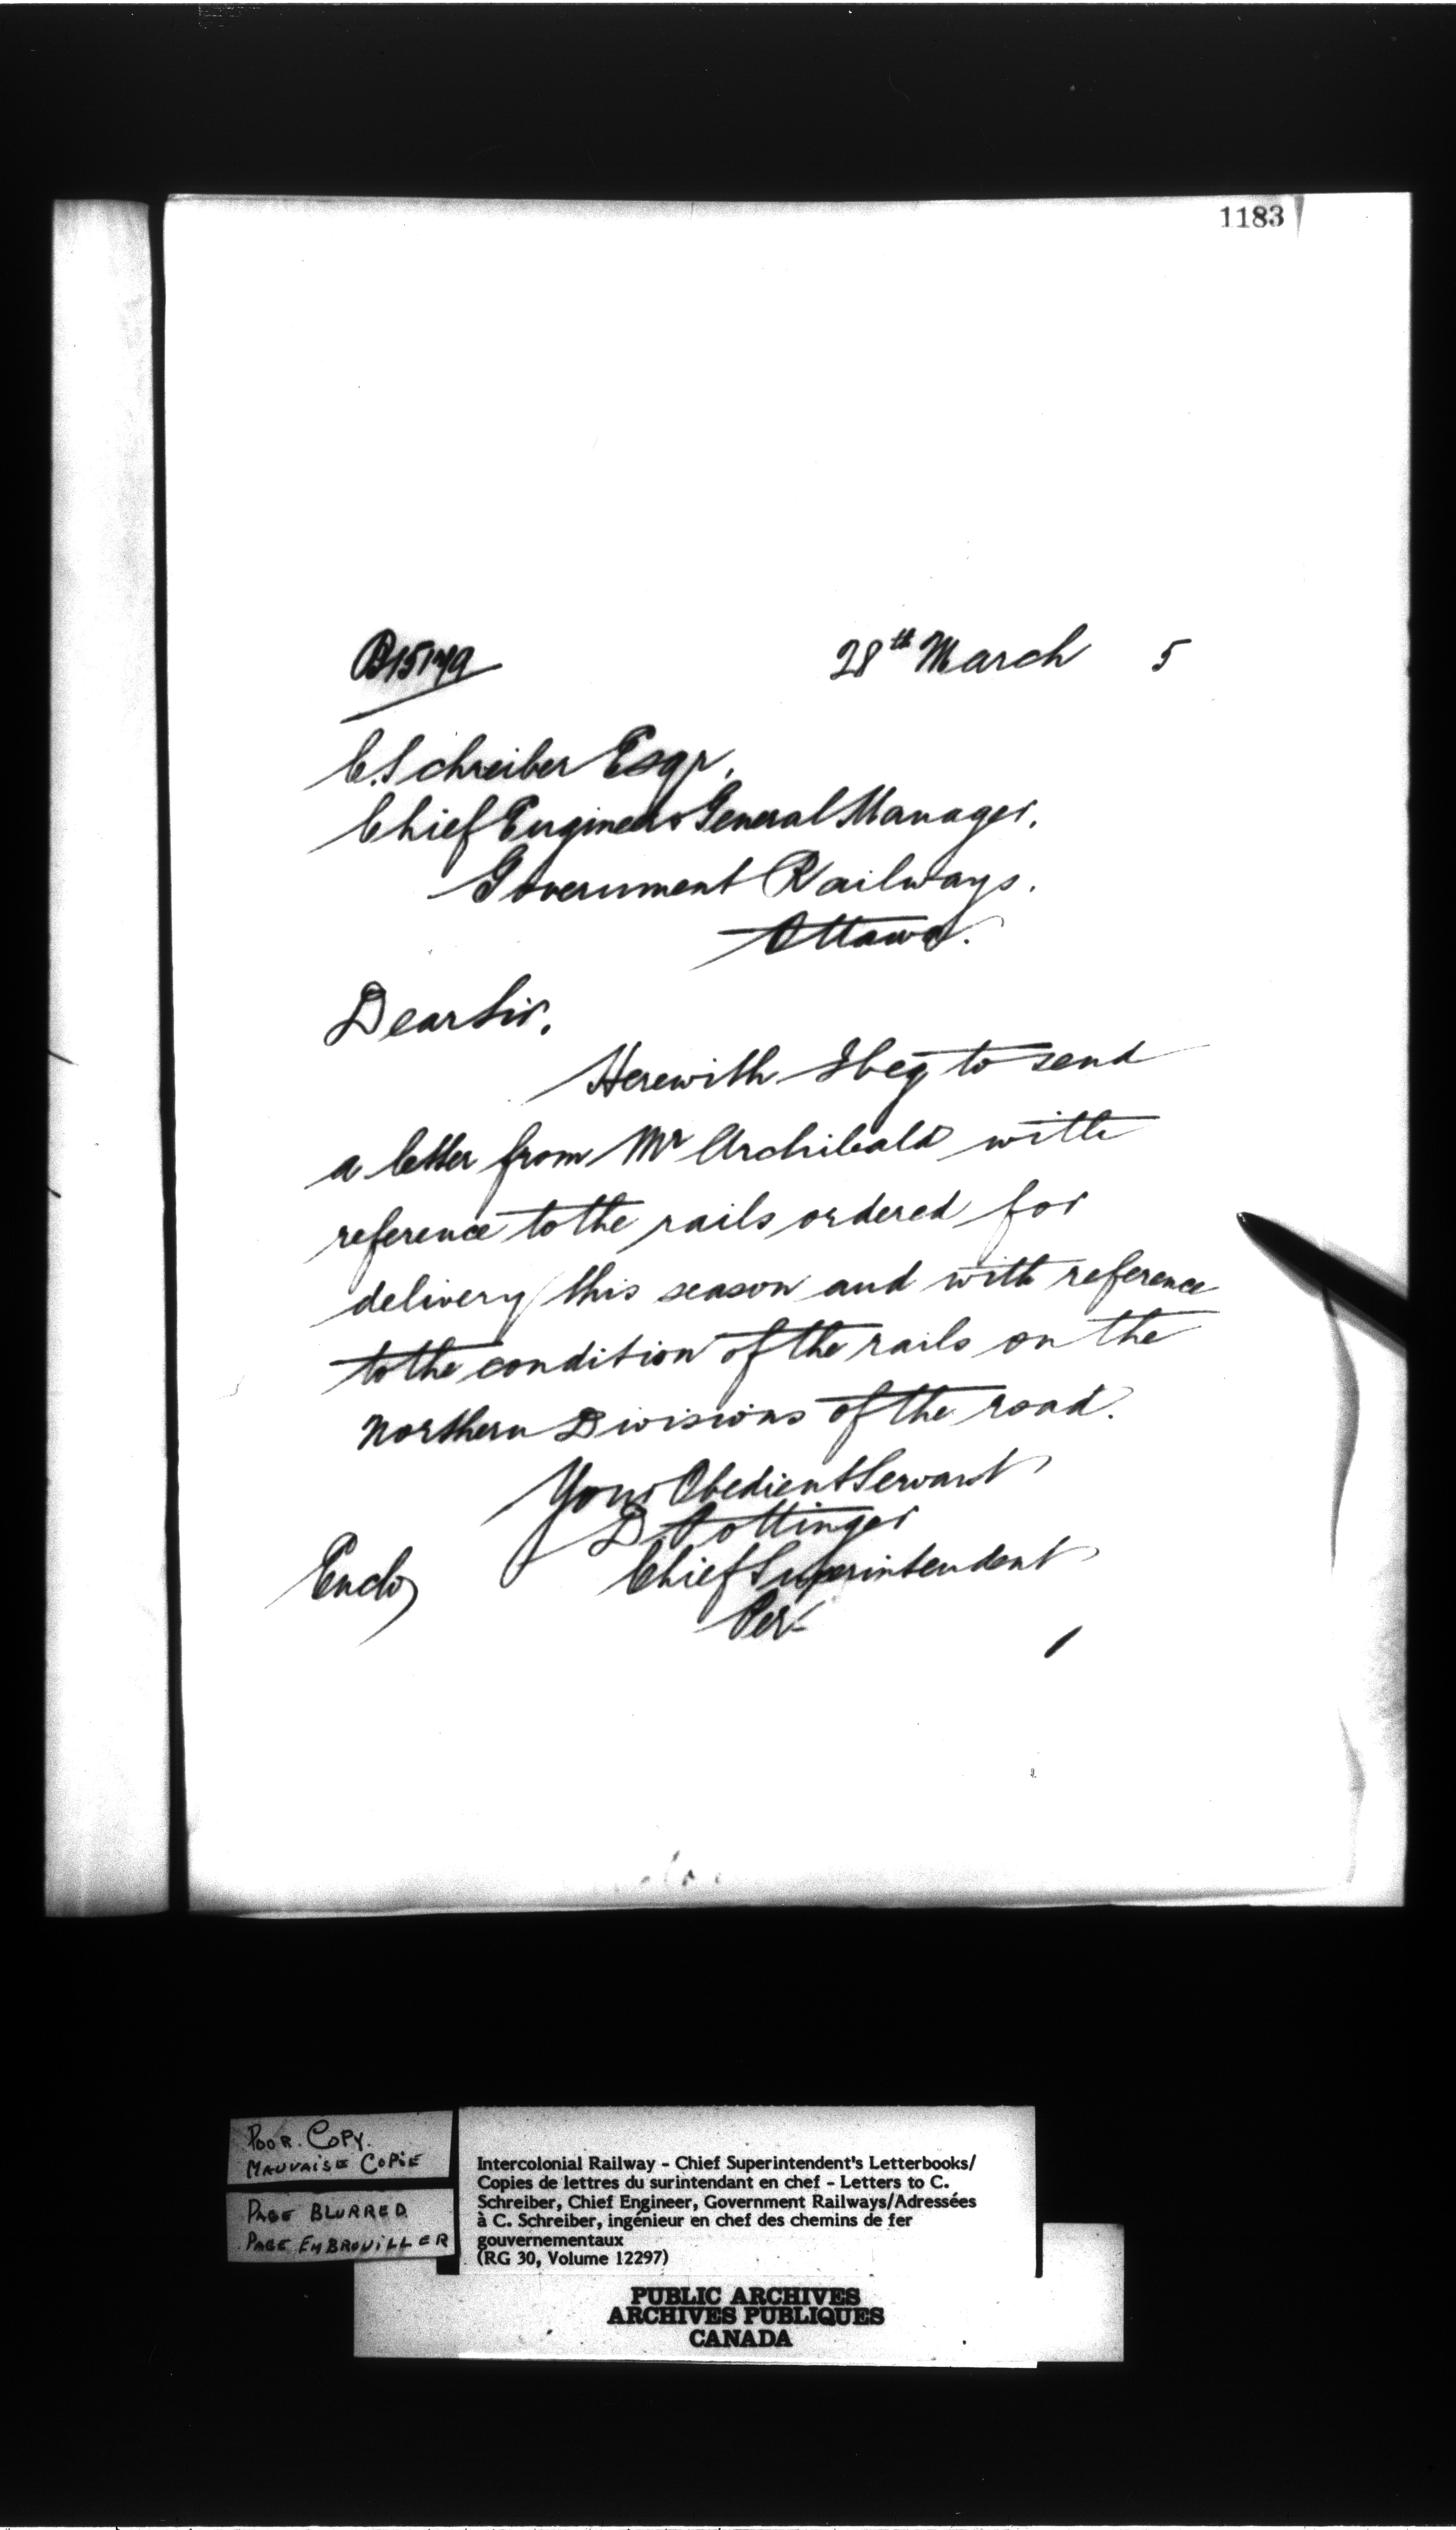 1183
28th March 5
C. Schreiber Esqr,
Chief Engineer & General Manager.
Government Railways.
Ottawa.
Dear Sir.
Herewith I beg to send
a letter from Mr Archibald with
reference to the rails ordered for
delivery this season and with reference
to the condition of the rails on the
Northern Divisions of the road.
Your Obedient Servant
D. Pottinger
Enclo
Chief Superintendent
Per
POOR. COPY.
MAUVAISE COPIE
PAGE BLURRED
PAGE EMBROUILLER
Intercolonial Railway - Chief Superintendent's Letterbooks/
Copies de lettres du surintendant en chef - Letters to C.
Schreiber, Chief Engineer, Government Railways/Adressées
à C. Schreiber, ingénieur en chef des chemins de fer
gouvernementaux
(RG 30, Volume 12297)
PUBLIC ARCHIVES
ARCHIVES PUBLIQUES
CANADA